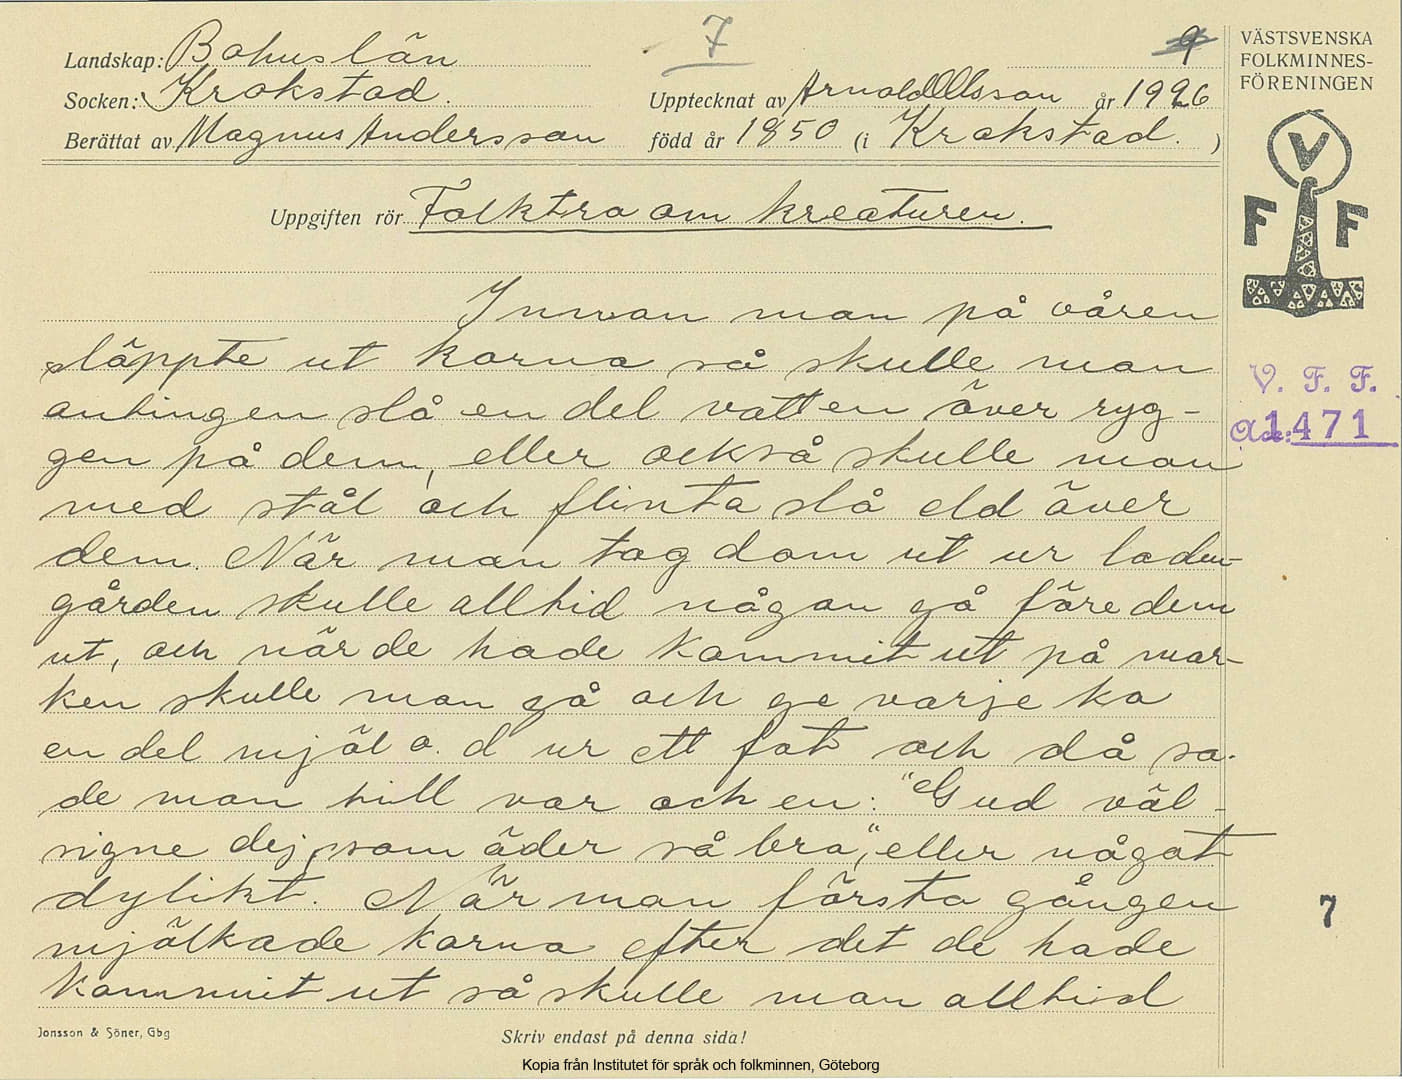 Landskap: Bohuslän
7
9
Socken: Krokstad.
Upptecknat av Arnold Olsson år 1926
Berättat av Magnus Andersson född år 1850 (i Krokstad. )
Uppgiften rör Folktro om kreaturen.
Innan man på våren
släppte ut korna så skulle man
antingen slå en del vatten över ryg-
gen på dem, eller också skulle man
med stål och flinta slå eld över
dem. När man tog dom ut ur ladu-
gården skulle alltid någon gå före dem
ut, och när de hade kommit ut på mar-
ken skulle man gå och ge varje ko
en del mjöl o. d ur ett fat och då sa-
de man till var och en: "Gud väl-
signe dej som äder så bra", eller något
dylikt. När man första gången
mjölkade korna efter det de hade
kommit ut så skulle man alltid
Jonsson & Söner, Gbg
Skriv endast på denna sida!
Kopia från Institutet för språk och folkminnen, Göteborg
VÄSTSVENSKA
FOLKMINNES-
FÖRENINGEN
V
F F
V. F. F.
Acc: 1471
7